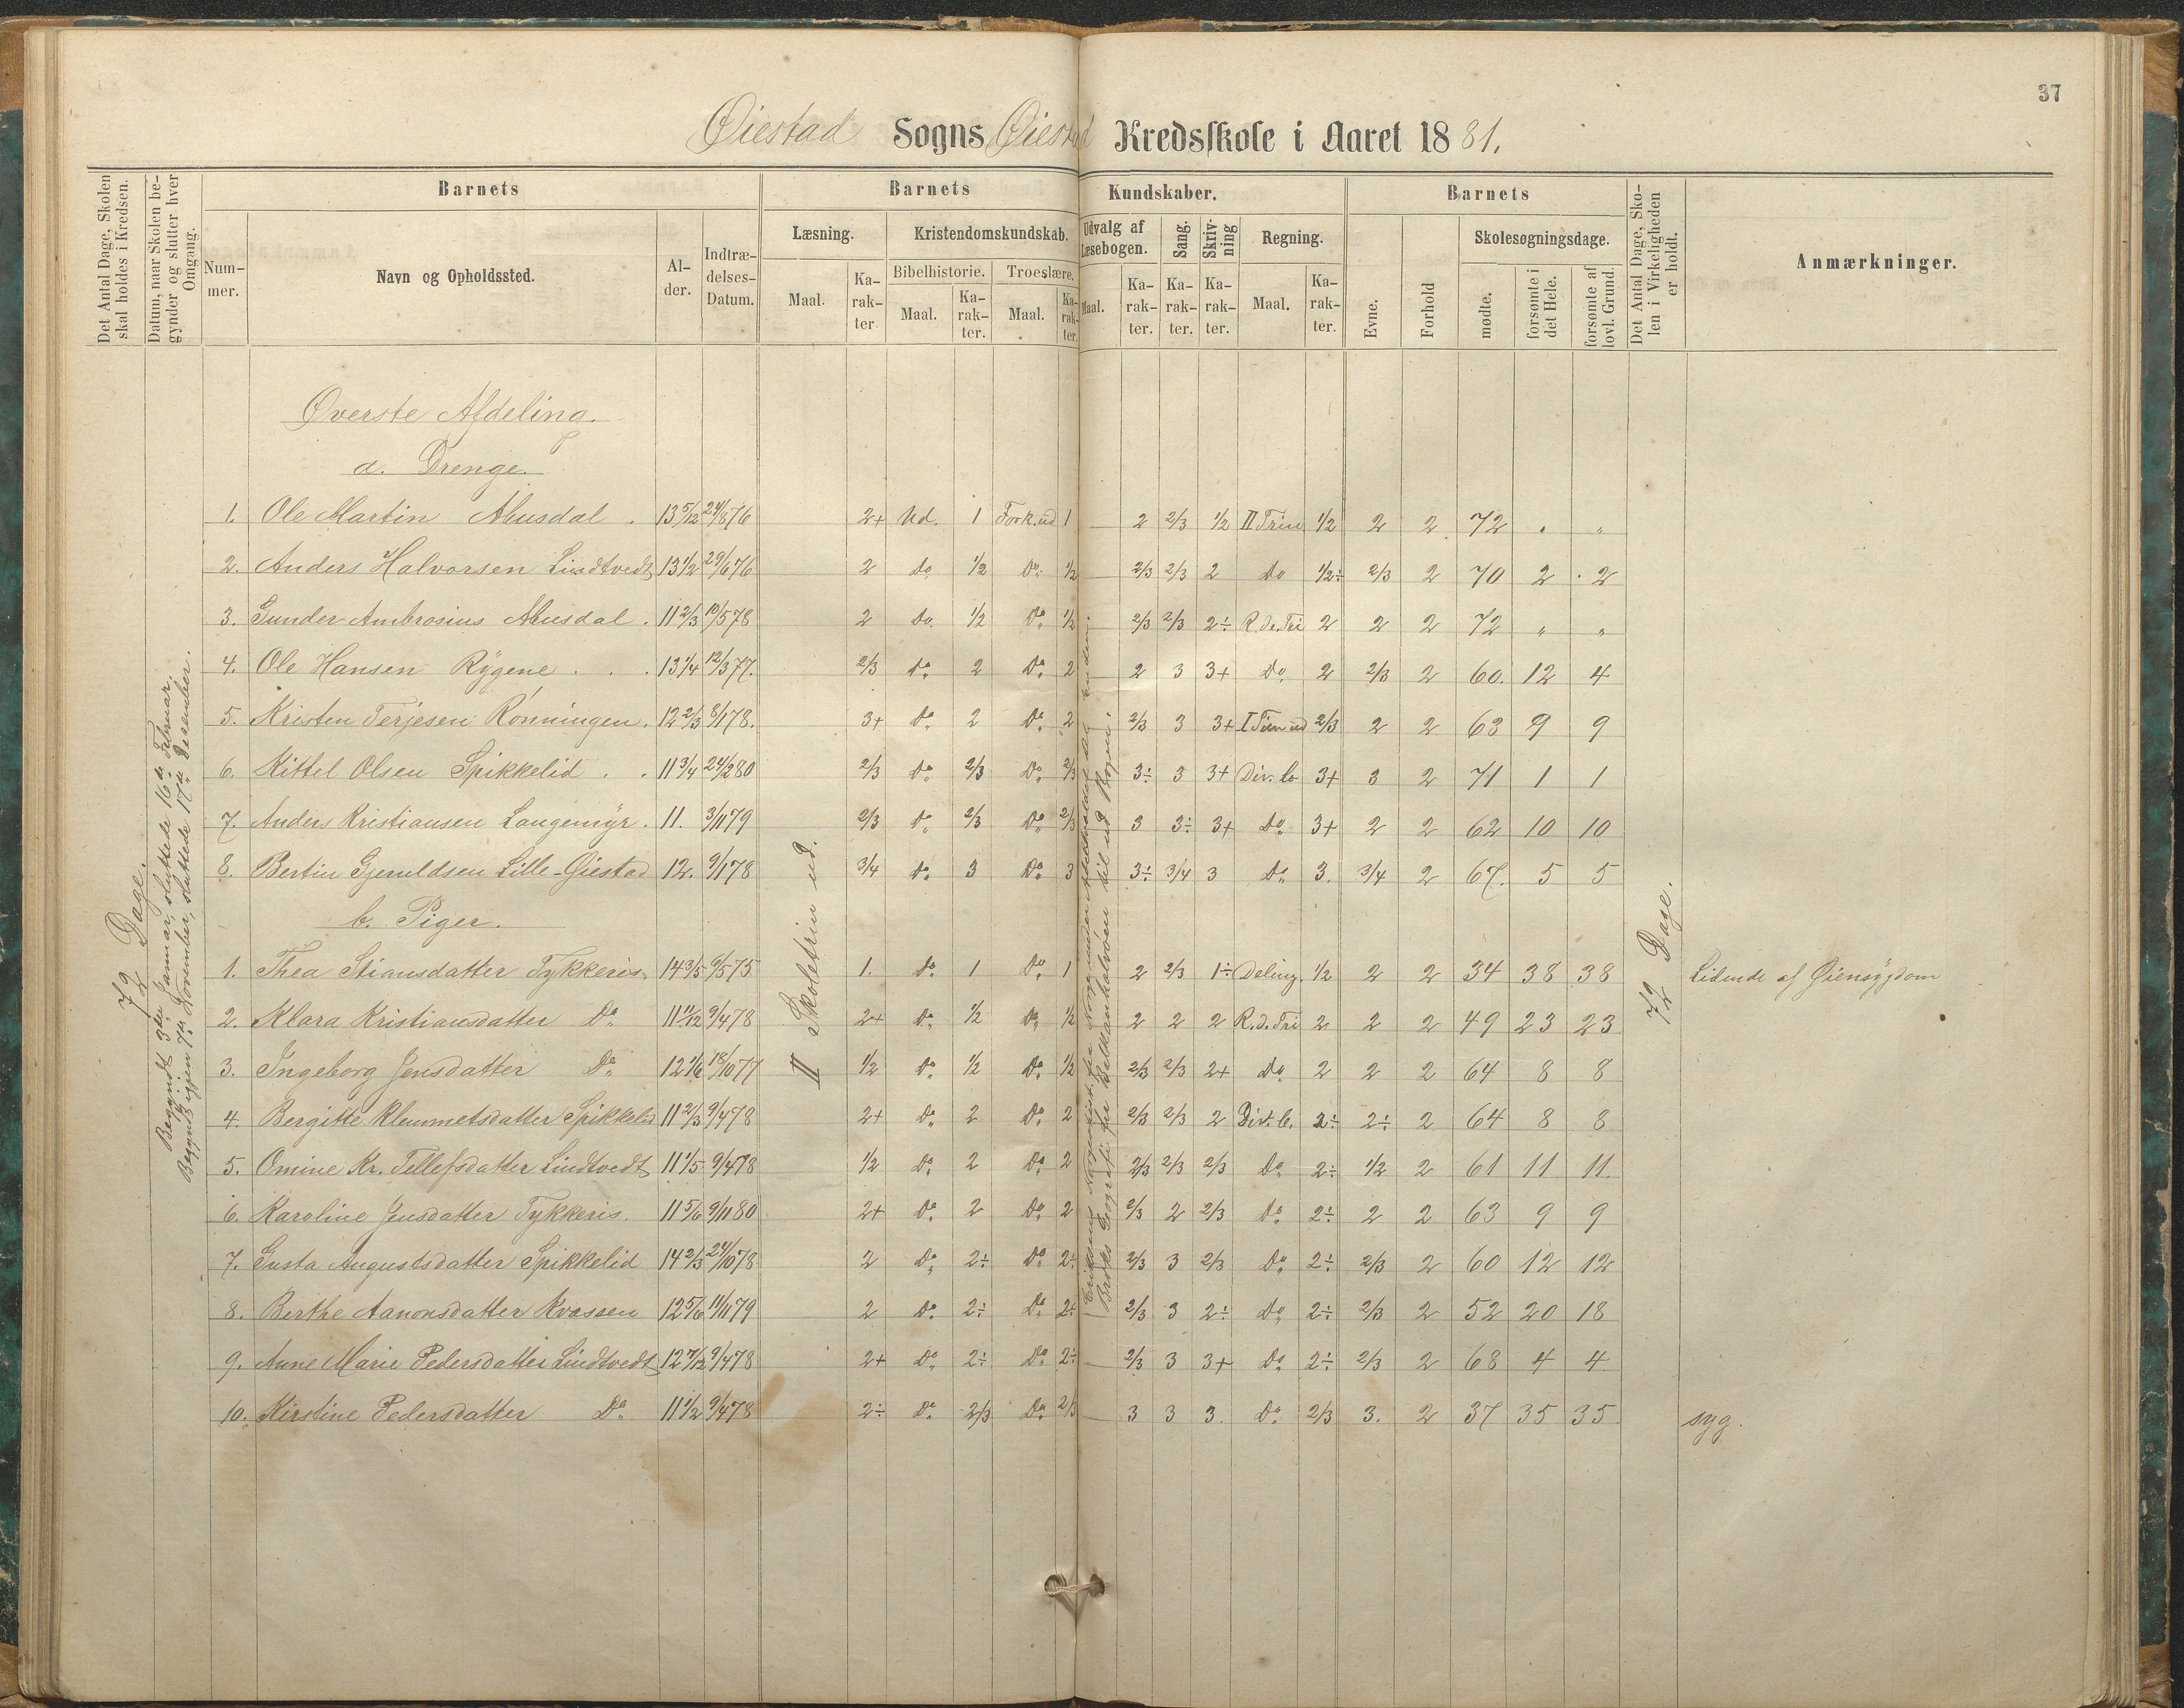 37
Øiestad Sogns Øiestad Kredsskole i Aaret 1881.
Det Antal Dage, Skolen skal holdes i Kredsen.
Datum, naar Skolen begynder og slutter hver Omgang.
Barnets
Nummer.
Navn og Opholdssted.
Alder.
Indtrædelses-Datum.
Barnets Kundskaber.
Læsning.
Maal.
Karakter
Kristendomskundskab.
Bibelhistorie.
Maal.
Karakter.
Troeslære.
Maal.
Karakter.
Udvalg af Læsebogen.
Maal.
Karakter.
Sang.
Karakter.
Skrivning
Karakter.
Regning.
Maal.
Karakter.
Barnets
Evne.
Forhold
Skolesøgningsdage.
mødte.
forsømte i det Hele.
forsømte af lovl. Grund.
Det Antal Dage, Skolen i Virkeligheden er holdt.
Anmærkninger.
72 Dage.
Begyndt 3die Januar, sluttede 16de Februar.
Begyndt igjen 7de November, sluttede 17de Desember.
II Skoletrin ud.
72 Dage.
Øverste Afdeling.
a. Drenge.
1. Ole Martin Ausdal . 13 5/12 24/8 76 2+ Ud. 1 Fork. ud 1 — 2 2/3 1/2 II Trin 1/2 2 2 72 " "
2. Anders Halvorsen Lindtvedt 13 1/2 29/6 76 2 Do 1/2 Do 1/2 — 2/3 2/3 2 Do 1/2÷ 2/3 2 70 2 2
3. Gunder Ambrosius Ausdal . 11 2/3 10/5 78 2 Do. 1/2 Do 1/2 2/3 2/3 2÷ R.de.Tri 2 2 2 72 " "
4. Ole Hansen Rygene . . . 13 1/4 12/3 77. 2/3 Do 2 Do 2 2 3 3+ Do 2 2/3 2 60. 12 4
5. Kristen Terjesen Rønningen. 12 2/3 8/1 78. 3+ Do 2 Do 2 2/3 3 3+ I Trin ud 2/3 2 2 63 9 9
6. Kittel Olsen Spikkelid . . 11 3/4 24/2 80 2/3 Do 2/3 Do 2/3 3÷ 3 3+ Div. b. 3+ 3 2 71 1 1
7. Anders Kristiansen Langemyr. 11. 3/11 79 2/3 Do 2/3 Do 2/3 3 3÷ 3+ Do 3+ 2 2 62 10 10
8. Bertin Gjeruldsen Lille-Øiestad 12. 9/1 78 3/4 Do 3 Do 3 3÷ 3/4 3 Do 3. 3/4 2 67. 5 5
b. Piger.
1. Thea Stiansdatter Tykkeris 14 3/5 9/5 75 1. Do 1 Do 1 2 2/3 1÷ Deling 1/2 2 2 34 38 38 Lidende af Øiensygdom
2. Klara Kristiansdatter Do 11 11/12 9/4 78 2+ Do 1/2 Do 1/2 2 2 2 R.d.Tri 2 2 2 49 23 23
3. Ingeborg Jensdatter Do 12 1/6 18/10 77 1/2 Do 1/2 Do 1/2 2/3 2/3 2+ Do 2 2 2 64 8 8
4. Bergitte Klemmetsdatter Spikkelid 11 2/3 9/4 78 2+ Do 2 Do 2 2/3 2/3 2 Div. b. 2÷ 2÷ 2 64 8 8
5. Omine Kr. Tellefsdatter Lindtvedt 11 1/5 9/4 78 1/2 Do 2 Do 2 2/3 2/3 2/3 Do 2÷ 1/2 2 61 11 11.
6. Karoline Jensdatter Tykkeris. 11 5/6 9/11 80 2+ Do 2 Do 2 2/3 2 2/3 Do 2÷ 2 2 63 9 9
7. Gusta Augustsdatter Spikkelid 14 2/3 24/10 78 2 Do 2÷ Do 2÷ 2/3 3 2/3 Do 2÷ 2/3 2 60 12 12
8. Birthe Aanonsdatter Kvassen 12 5/6 11/11 79 2 Do 2÷ Do 2÷ 2/3 3 2÷ Do 2÷ 2/3 2 52 20 18
9. Anne Marie Pedersdatter Lindtvedt 12 7/12 9/4 78 2+ Do 2÷ Do 2÷ — 2/3 3 3+ Do 2÷ 2/3 2 68 4 4
10. Kirstine Pedersdatter Do 11 1/2 9/4 78 2÷ Do 2/3 Do 2/3 — 3 3 3. Do 2/3 3. 2 37 35 35 syg.